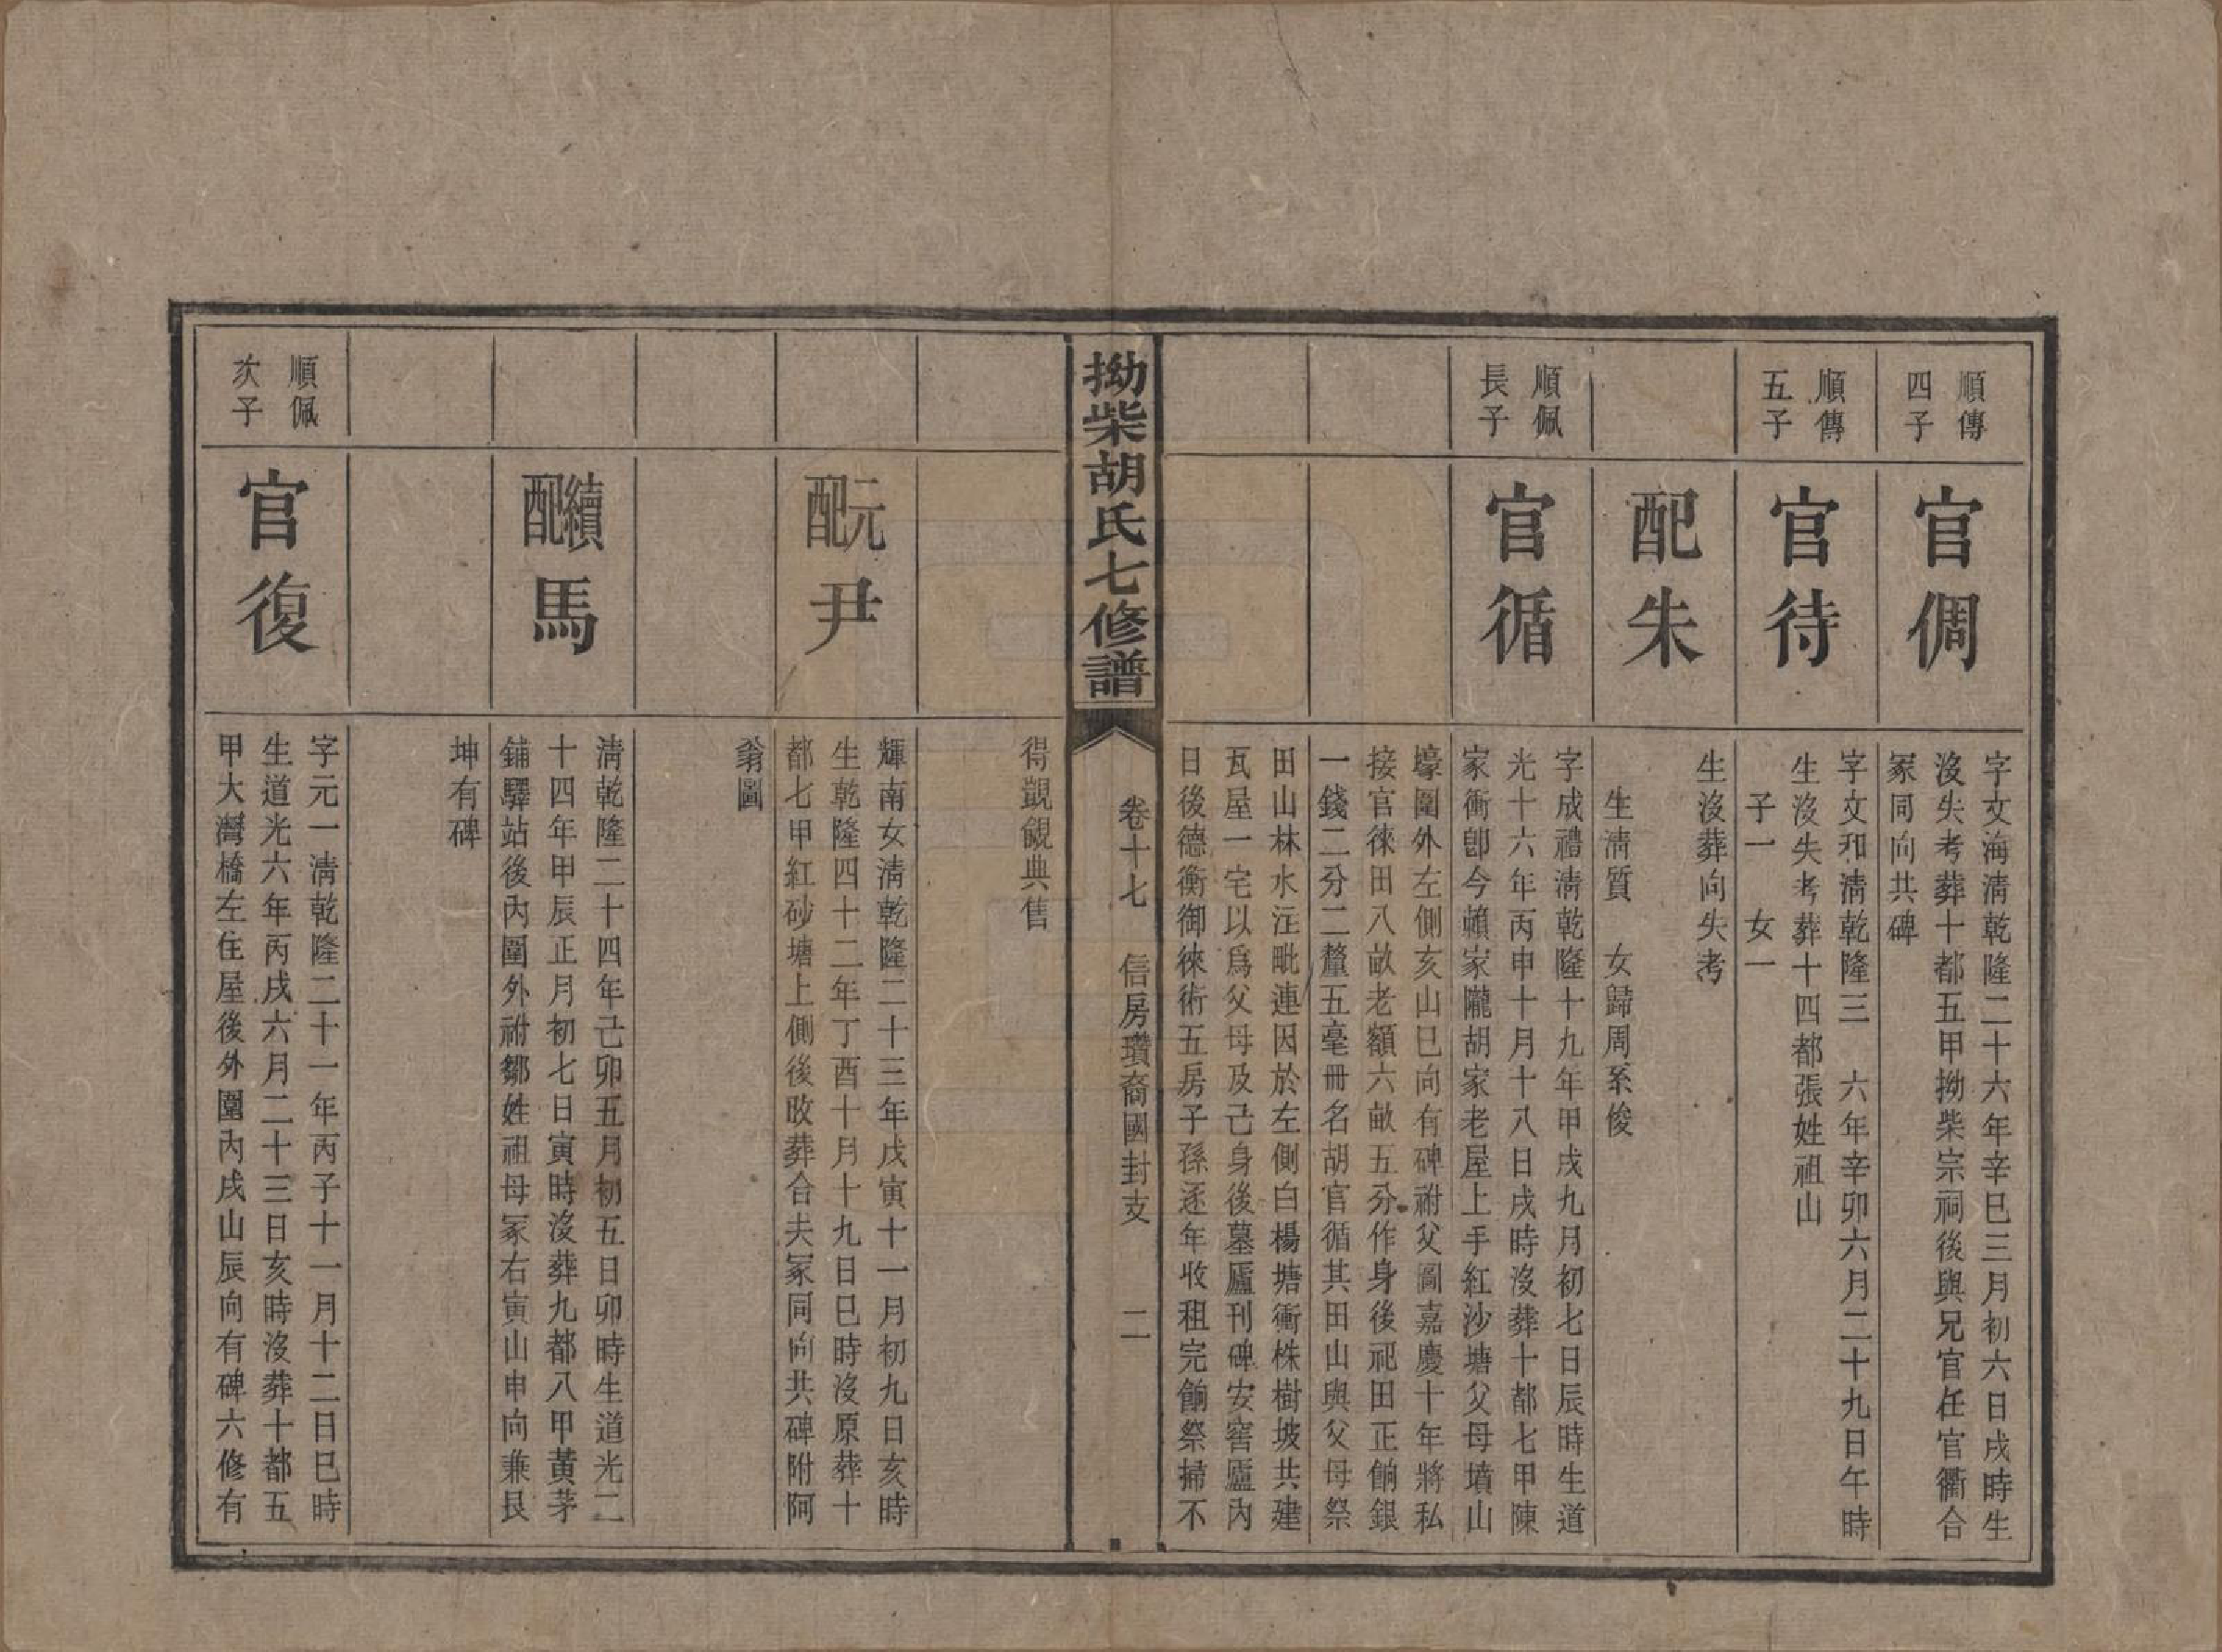 順傳
四子
官倜
字文海淸乾隆二十六年辛巳三月初六日戌時生
沒失考葬十都五甲拗柴宗祠後與兄官任官衢合
冢同向共碑
順傳
五子
官待
字文和淸乾隆三　六年辛卯六月二十九日午時
生沒失考葬十四都張姓祖山
子一　女一
配朱
生沒葬向失考
生淸質　女歸周系俊
順佩
長子
官循
字成禮淸乾隆十九年甲戌九月初七日辰時生道
光十六年丙申十月十八日戌時沒葬十都七甲陳
家衝卽今賴家隴胡家老屋上手紅沙塘父母墳山
壕圍外左側亥山巳向有碑祔父圖嘉慶十年將私
接官徠田八畝老額六畝五分作身後祀田正餉銀
一錢二分二釐五毫冊名胡官循其田山與父母祭
田山林水注毗連因於左側白楊塘衝株樹坡共建
瓦屋一宅以爲父母及己身後墓廬刊碑安窖廬內
日後德衡御徠術五房子孫逐年收租完餉祭掃不
拗柴胡氏七修譜
卷十七　信房瓚裔國封支　二
得覬覦典售
元配
尹
輝南女淸乾隆二十三年戊寅十一月初九日亥時
生乾隆四十二年丁酉十月十九日巳時沒原葬十
都七甲紅砂塘上側後改葬合夫冢同向共碑附阿
翁圖
續配
馬
淸乾隆二十四年己卯五月初五日卯時生道光二
十四年甲辰正月初七日寅時沒葬九都八甲黃茅
鋪驛站後內圍外祔鄒姓祖母冢右寅山申向兼艮
坤有碑
順佩
次子
官復
字元一淸乾隆二十一年丙子十一月十二日巳時
生道光六年丙戌六月二十三日亥時沒葬十都五
甲大灣橋左住屋後外圍內戌山辰向有碑六修有